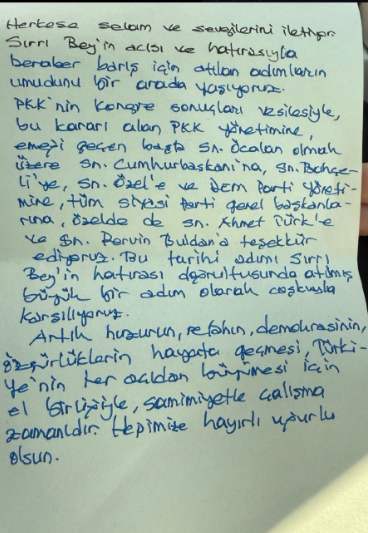 Herkese selam ve sevgilerini iletiyor.
Sırrı Bey'in acısı ve hatırasıyla
beraber barış için atılan adımların
umudunu bir arada yaşıyoruz.
PKK'nin kongre sonuçları vesilesiyle,
bu kararı alan PKK yönetimine,
emeği geçen başta Sn. Öcalan olmak
üzere Sn. Cumhurbaşkanı'na, Sn. Bahçe-
li'ye, Sn. Özel'e ve Dem Parti yöneti-
mine, tüm siyasi parti genel başkanla-
rına, özelde de Sn. Ahmet Türk'e
ve Sn. Pervin Buldan'a teşekkür
ediyoruz. Bu tarihi adımı Sırrı
Bey'in hatırası doğrultusunda atılmış
büyük bir adım olarak coşkuyla
karşılıyoruz.
Artık huzurun, refahın, demokrasinin,
özgürlüklerin hayata geçmesi, Türki-
ye'nin her açıdan büyümesi için
el birliğiyle, samimiyetle çalışma
zamanıdır. Hepimize hayırlı uğurlu
olsun.